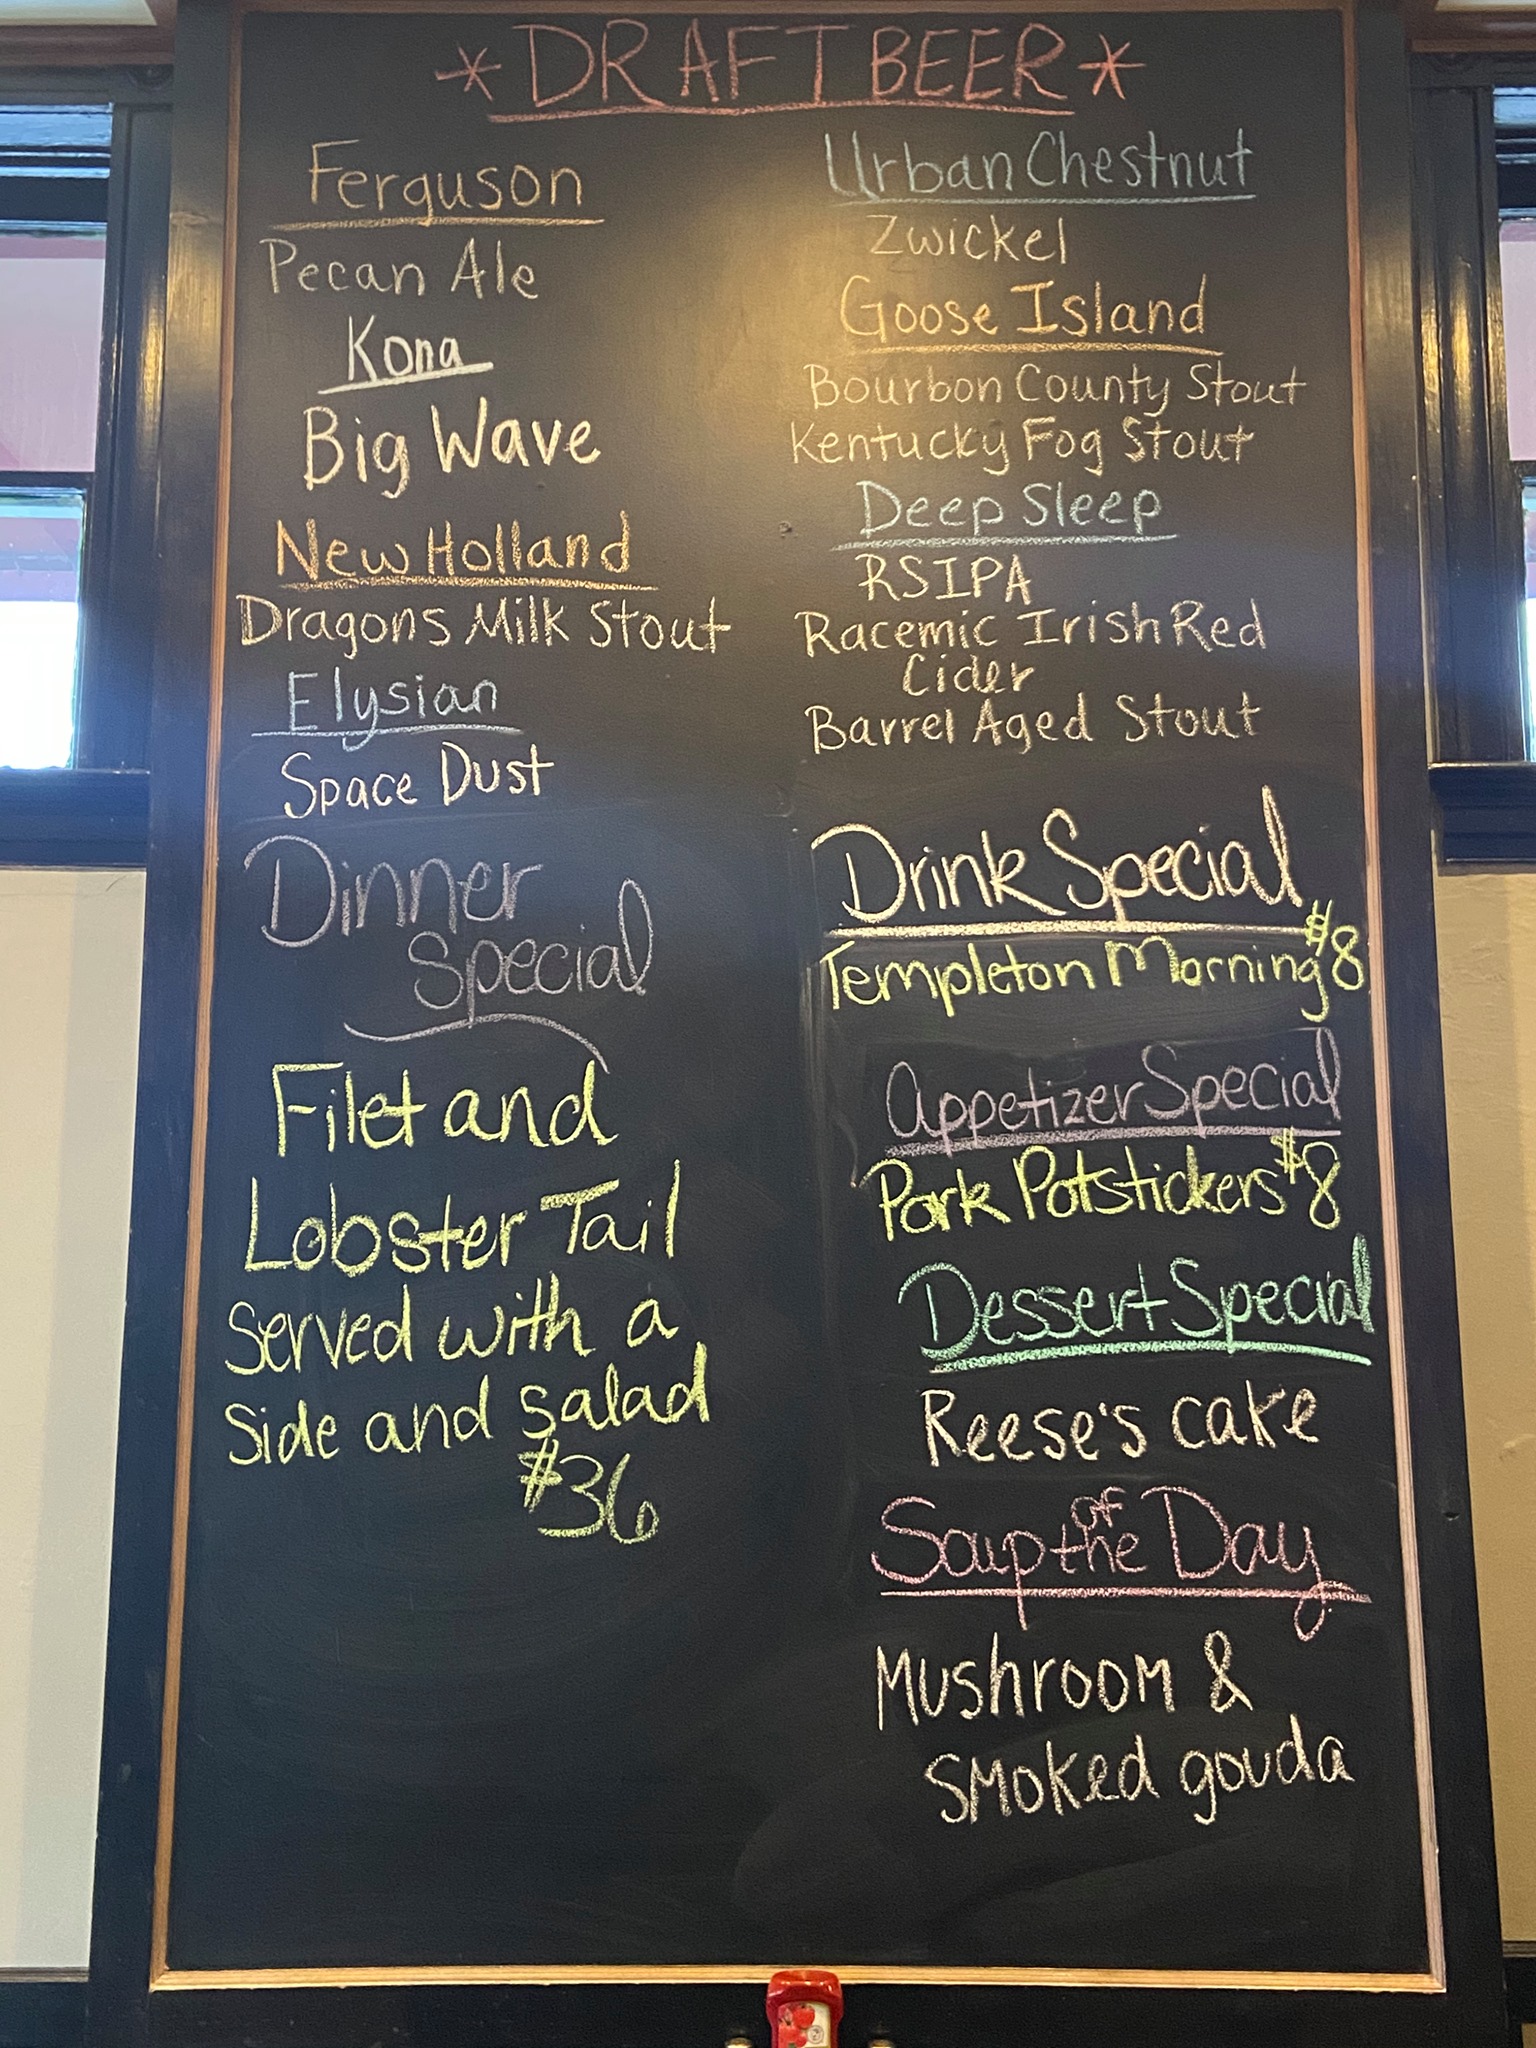 *DRAFT BEER*
Ferguson
Pecan Ale
Kona
Big Wave
New Holland
Dragons Milk Stout
Elysian
Space Dust
Dinner
Special
Filet and
Lobster Tail
Served with a
side and salad
$36
Urban Chestnut
Zwickel
Goose Island
Bourbon County Stout
Kentucky Fog Stout
Deep Sleep
RSIPA
Racemic Irish Red
Cider
Barrel Aged Stout
Drink Special
Templeton Morning $8
Appetizer Special
Pork Potstickers $8
Dessert Special
Reese's cake
Soup of the Day
Mushroom &
smoked gouda